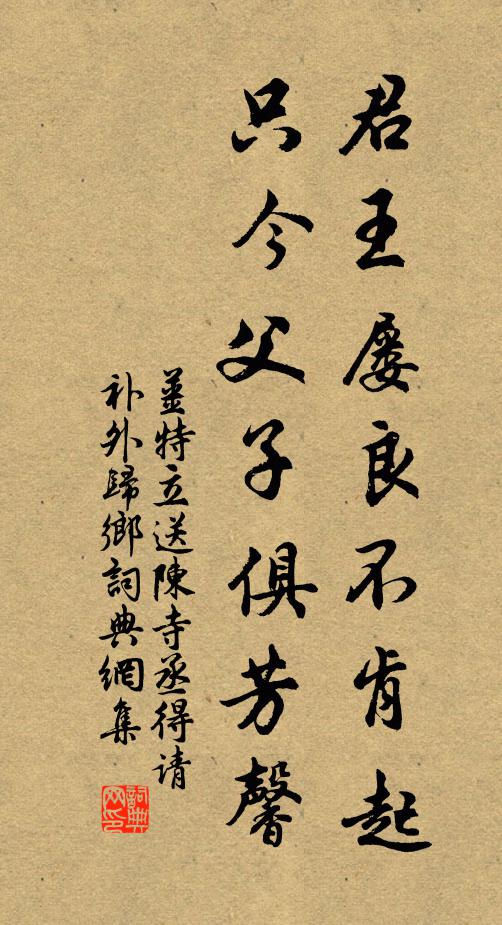 君王屡良不肯起
只今父子俱芳馨
姜特立送陳寺丞得请
补外歸鄉詞典網集
詞典
网印